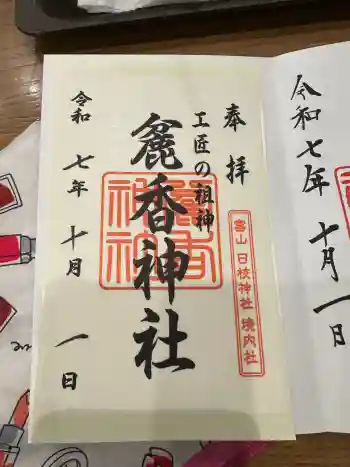 奉拝
工匠の祖神
麁香神社
富山 日枝神社 境内社
令和 七年 十月 一日
令和七年 十月一日